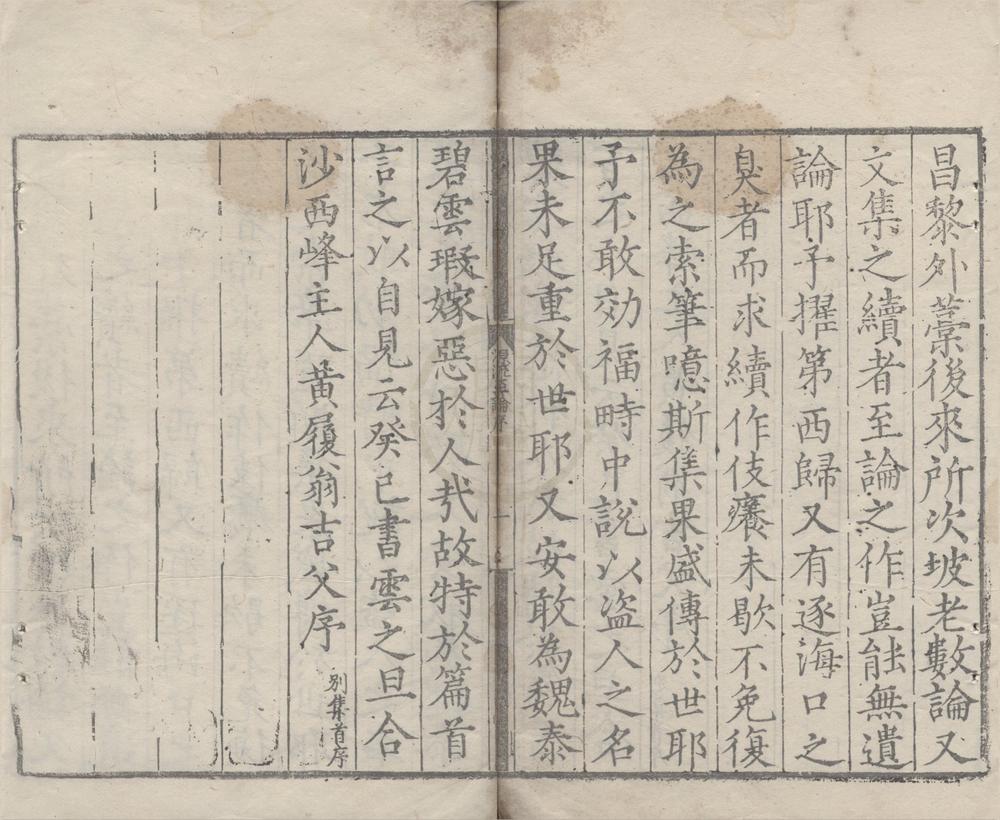 昌黎外藁後來所次坡老數論又
文集之續者至論之作豈能無遺
論耶予擢第西歸又有逐海口之
臭者而求續作伎癢未歇不免復
為之索筆噫斯集果盛傳於世耶
予不敢効福畤中說以盜人之名
果未足重於世耶又安敢為魏泰
源流至論序
一
碧雲瑕嫁惡於人哉故特於篇首
言之以自見云癸巳書雲之旦合
沙西峰主人黃履翁吉父序
別集首序